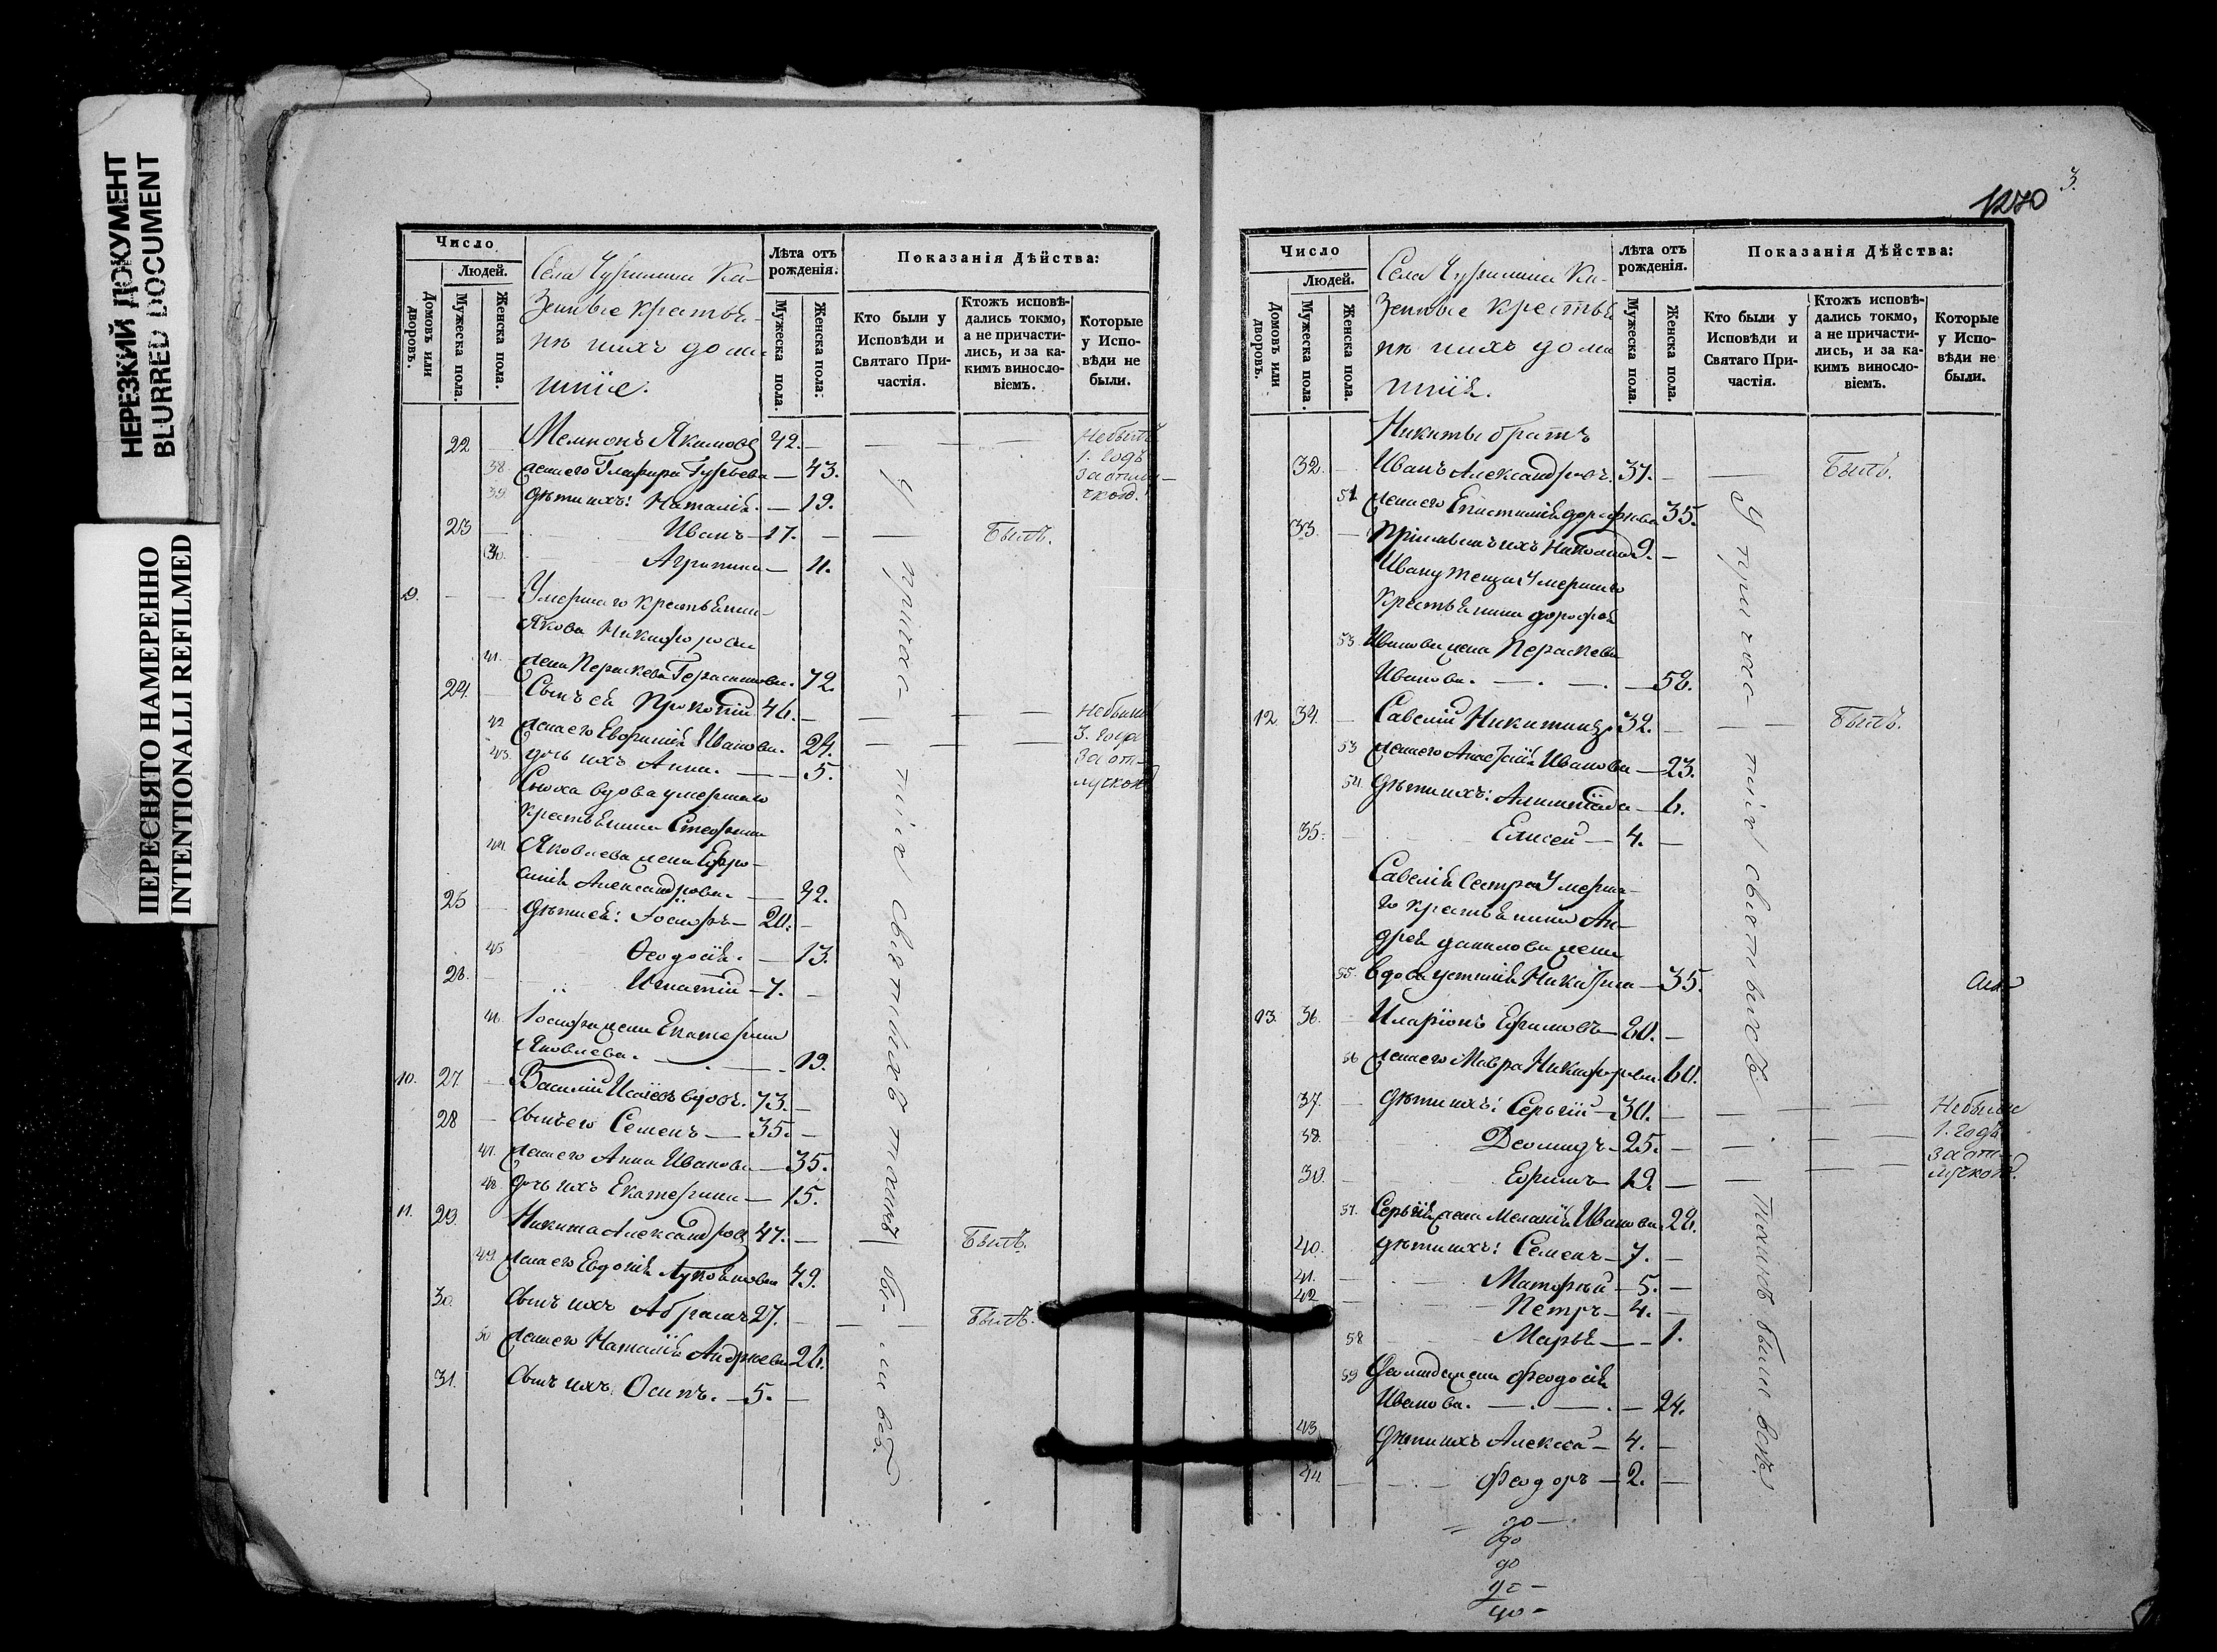 НЕРЕЗКИЙ ДОКУМЕНТ
BLURRED DOCUMENT
ПЕРЕСНЯТО НАМЕРЕННО
INTENTIONALLI REFILMED
Число
Людей.
Домовъ или дворовъ.
Мужеска пола.
Женска пола.
Села Чурилина Ка-
зенные крестья-
не и ихъ дома-
шніе.
Лѣта отъ
рожденія.
Мужеска пола.
Женска пола.
Показанія Дѣйства:
Кто были у
Исповѣди и
Святаго При-
частія.
Ктожъ исповѣ-
дались токмо,
а не причасти-
лись, и за ка-
кимъ винослo-
віемъ.
Которые
у Испо-
вѣди не
были.
22 Мемнонъ Якимовъ 42. Небылъ
1. годъ
38 жена его Глафира Гурьева 43. за отлу-
39 дѣти ихъ: Наталія. 19. чкою.
23 Иванъ 17. Былъ.
Агрипина 11.
9. Умершаго крестьянина
Якова Никифорова
41 жена Параскева Герасимова. 72.
24. Сынъ ея Прокопій 46. Небыли
42 жена его Евфимія Иванова. 24. 3. года
43. дочь ихъ Анна. 5. за от-
Сноха вдова умершаго лучкою
крестьянина Стефана
44 Яковлева жена Ефро-
синія Александрова. 42.
25 дѣти ея: Іосифъ 20.
45 Ѳеодосія. 13.
26. Игнатій 7.
46. Іосифа жена Екатерина
Яковлева. 19.
10. 27. Василій Исаевъ вдовъ. 73.
28 сынъ его Семенъ 35.
47. жена его Анна Иванова 35.
48 дочь ихъ Екатерина 15.
11. 29. Никита Александровъ 47. Былъ.
49 жена его Евдокія Лукоянова 49.
30. сынъ ихъ Абрамъ 27. Былъ.
50 жена его Наталія Андреева 26.
31. сынъ ихъ: Осипъ. 5.
У прича-
тія святыхъ таинъ
1270
3.
Число
Людей.
Домовъ или дворовъ.
Мужеска пола.
Женска пола.
Села Чурилина Ка-
зенные крестья
не и ихъ дома
шнія.
Лѣта отъ
рожденія.
Мужеска пола.
Женска пола.
Показанія Дѣйства:
Кто были у
Исповѣди и
Святаго При-
частія.
Ктожъ исповѣ-
дались токмо,
а не причасти-
лись, и за ка-
кимъ винослo-
віемъ.
Которые
у Испо-
вѣди не
были.
Никиты братъ
32. Иванъ Александровъ. 37. Былъ.
51 жена его Епистимія Дорофеева 35.
33. 9.
Ивану теща Умершаго
крестьянина Дорофея
53. Иванова жена Параскева
Иванова. 58.
12. 34. Савелій Никитинъ 32. Былъ.
53 жена его Анастасія Иванова 23.
54. дѣти ихъ: 6.
35. Елисей 4.
Савелія сестра Умерша-
го крестьянина Ан-
дрея Данилова жена
55. вдова Устинія Никитина 35.
13. 36. Иларіонъ Ефимовъ 60.
56 жена его Мавра Никифорова 60.
37. дѣти ихъ: Сергѣй 30. Небыли
38. Деомидъ 25. 1. годъ
39. Ефимъ 19. за от-
лучкою.
57. Сергѣя жена Меланія Иванова 28.
40. дѣти ихъ: Семенъ 7.
41. Матфѣй 5.
42 Петръ 4.
58 Марья 1.
59 Деомида жена Феодосія
Иванова. 24.
43 дѣти ихъ Алексѣй 4.
44 Феодоръ 2.
У причастія святыхъ
таинъ были всѣ.
до
до
до
до
до